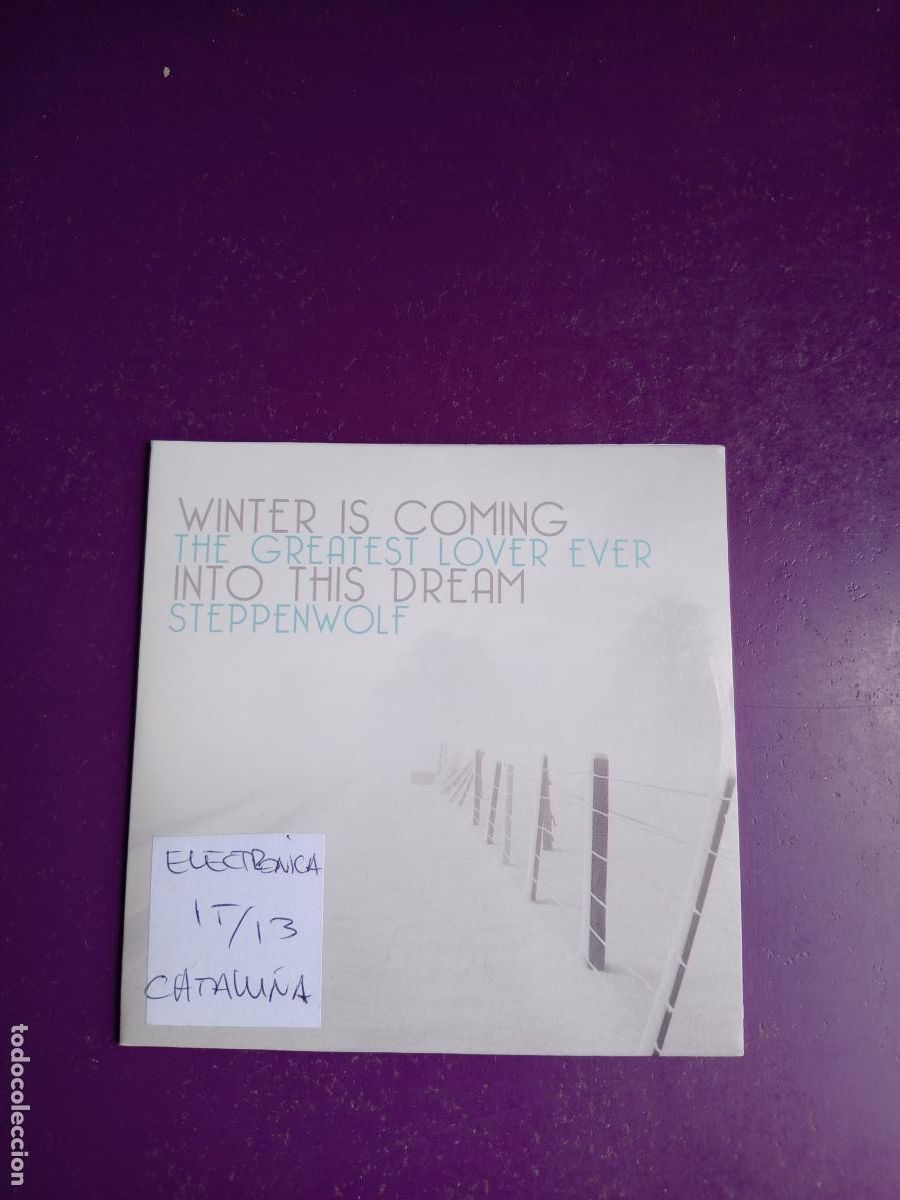 WINTER IS COMING
THE GREATEST LOVER EVER
INTO THIS DREAM
STEPPENWOLF
ELECTRONICA
1T/13
CATALUÑA
todocoleccion